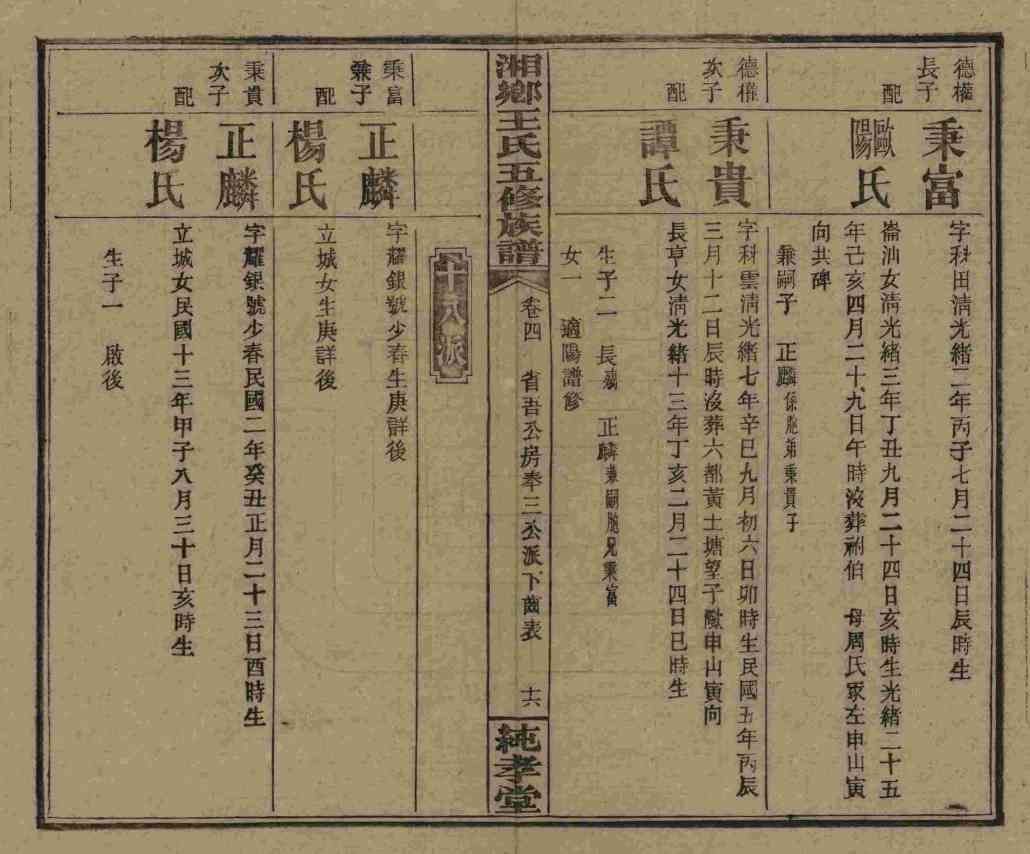 德權
長子
秉富
字科田清光緒二年丙子七月二十四日辰時生
配
歐陽氏
崙汕女清光緒三年丁丑九月二十四日亥時生光緒二十五
年己亥四月二十九日午時沒葬祔伯 母周氏冢左申山寅
向共碑
兼嗣子 正麟係胞弟秉貴子
德權
次子
秉貴
字科雲清光緒七年辛巳九月初六日卯時生民國五年丙辰
三月十二日辰時沒葬六都黃土塘望子 申山寅向
配
譚氏
長亨女清光緒十三年丁亥二月二十四日巳時生
生子二 長殤 正麟兼嗣胞兄秉富
女一 適陽譜修
湘鄉王氏五修族譜
卷四 省吾公房奉三公派下齒表 十六
純孝堂
十八派
秉富
兼子
正麟
字耀銀號少春生庚詳後
配
楊氏
立城女生庚詳後
秉貴
次子
正麟
字耀銀號少春民國二年癸丑正月二十三日酉時生
配
楊氏
立城女民國十三年甲子八月三十日亥時生
生子一 啟後